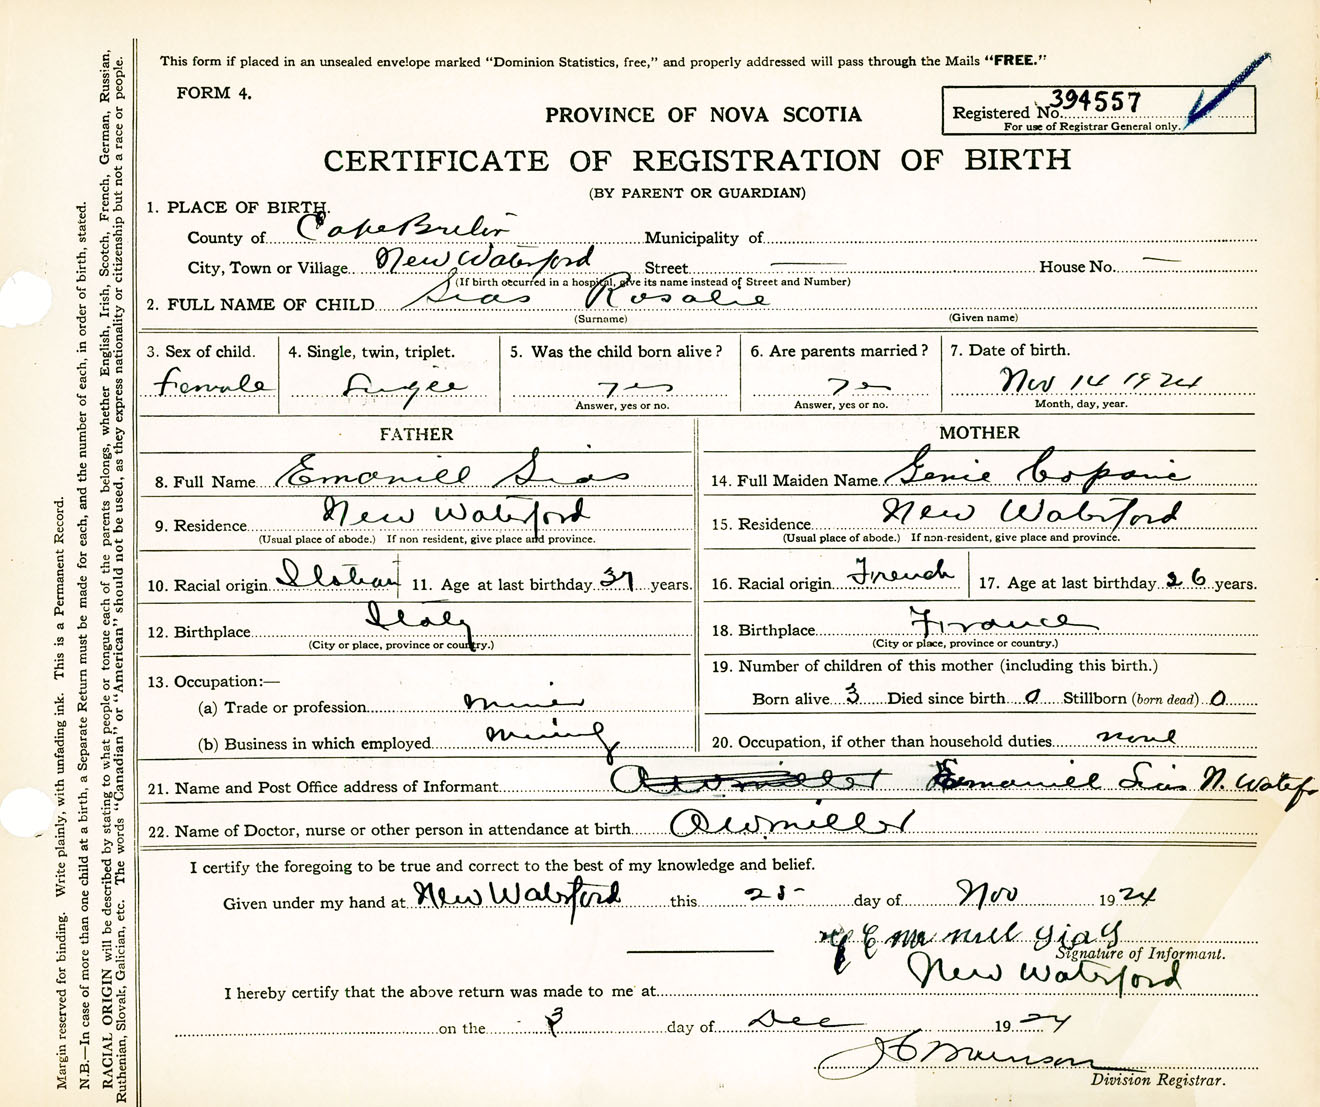 This form if placed in an unsealed envelope marked "Dominion Statistics, free," and properly addressed will pass through the Mails "FREE."
FORM 4.
PROVINCE OF NOVA SCOTIA
Registered No. 394557
For use of Registrar General only.
CERTIFICATE OF REGISTRATION OF BIRTH
(BY PARENT OR GUARDIAN)
1. PLACE OF BIRTH.
County of Cape Breton Municipality of
City, Town or Village New Waterford Street — House No. —
(If birth occurred in a hospital, give its name instead of Street and Number)
2. FULL NAME OF CHILD Sias Rosalie
(Surname) (Given name)
3. Sex of child. 4. Single, twin, triplet. 5. Was the child born alive? 6. Are parents married? 7. Date of birth.
Female Single yes yes Nov 14 1924
Answer, yes or no. Answer, yes or no. Month, day, year.
FATHER MOTHER
8. Full Name Emanuell Sias 14. Full Maiden Name Genie
9. Residence New Waterford 15. Residence New Waterford
(Usual place of abode.) If non resident, give place and province. (Usual place of abode.) If non-resident, give place and province.
10. Racial origin Italian 11. Age at last birthday 37 years. 16. Racial origin French 17. Age at last birthday 26 years.
12. Birthplace Italy 18. Birthplace France
(City or place, province or country.) (City or place, province or country.)
13. Occupation:— 19. Number of children of this mother (including this birth.)
(a) Trade or profession miner Born alive 3 Died since birth 0 Stillborn (born dead) 0
(b) Business in which employed mining 20. Occupation, if other than household duties none
21. Name and Post Office address of Informant AW Miller Emanuell Sias N. Waterfo
22. Name of Doctor, nurse or other person in attendance at birth AW Miller
I certify the foregoing to be true and correct to the best of my knowledge and belief.
Given under my hand at New Waterford this 25 day of Nov 1924
Signature of Informant.
New Waterford
I hereby certify that the above return was made to me at
on the 3 day of Dec 1924
Division Registrar.
Margin reserved for binding. Write plainly, with unfading ink. This is a Permanent Record.
N.B.—In case of more than one child at a birth, a Separate Return must be made for each, and the number of each, in order of birth, stated.
RACIAL ORIGIN will be described by stating to what people or tongue each of the parents belongs, whether English, Irish, Scotch, French, German, Russian,
Ruthenian, Slovak, Galician, etc. The words "Canadian" or "American" should not be used, as they express nationality or citizenship but not a race or people.